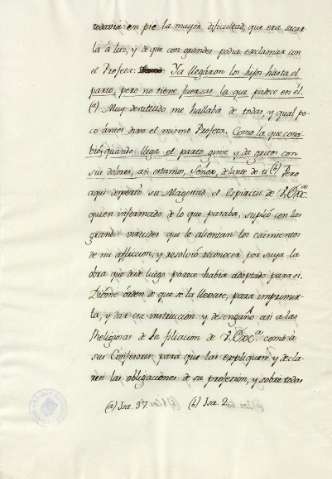 todavia en pie la mayor dificultad, que era sacar
la á luz, y de que con grandes podia exclamar con
el Profeta: Ya llegaron los hijos hasta el
parto, pero no tiene fuerzas la que padece en él.
(a) Muy destituido me hallaba de todas, y qual po
co antes dixo el mismo Profeta: Como la que conci
bió, quando llega el parto gime y da gritos con
sus dolores, así estamos, Señor, delante de ti (b) Pero
aqui despertó su Magestad el Espiritu de
quien informado de lo que pasaba, suplió con las
grandes virtudes que le los caimientos
de mi afliccion, y resolvió reconocer por suya la
obra que desde luego parece habia adoptado para sí.
Dióme órden de que se la llevase, para imprimir
la, y dar esa instruccion y desengaño así a las
Religiosas de la filiacion de como á
sus Confesores, para que las expliquen y decla
ren las obligaciones de su profesion, y sobre todas
(a) Isa. 37. (b) Isa. 2